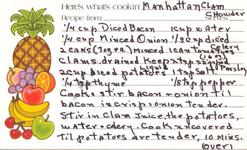 Here's what's cookin' Manhattan Clam
Chowder
Recipe from
1/4 cup Diced Bacon 1 cup water
1/4 cup Minced Onion 1/3 cup diced
2 cans (7 oz ea) Minced 1 can tomatoes Celery
Clams, drained Keep 2 tsp
Liquid Parsley
2 cup diced potatoes 1 tsp Salt
1/4 tsp thyme 1/8 tsp pepper
Cook & stir bacon & onion til
bacon is crisp & onion tender.
Stir in Clam Juice, the potatoes,
water & celery. Cook uncovered
til potatoes are tender, 10 mins.
(over)